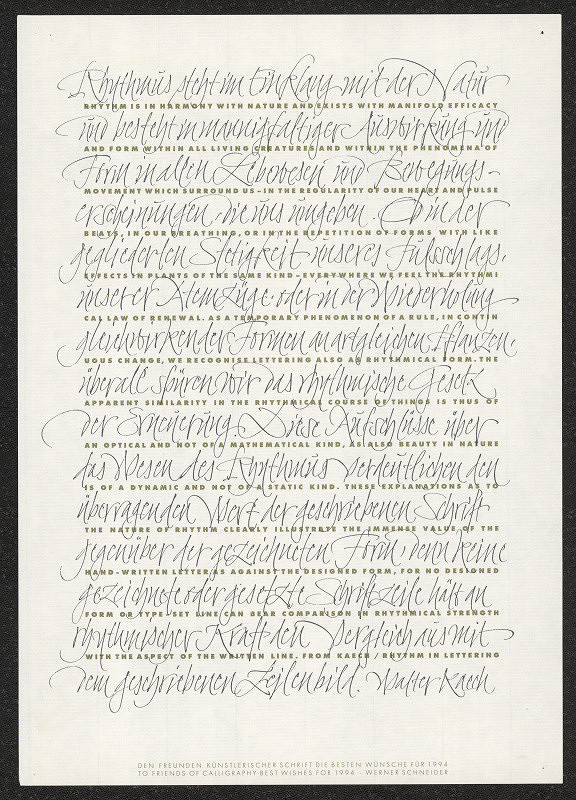 Rhythmus steht im Einklang mit der Natur
RHYTHM IS IN HARMONY WITH NATURE AND EXISTS WITH MANIFOLD EFFICACY
und besteht in mannigfaltiger Auswirkung und
AND FORM WITHIN ALL LIVING CREATURES AND WITHIN THE PHENOMENA OF
Form in allen Lebewesen und Bewegungs-
MOVEMENT WHICH SURROUND US - IN THE REGULARITY OF OUR HEART AND PULSE
erscheinungen, die uns umgeben. Ob in der
BEATS, IN OUR BREATHING, OR IN THE REPETITION OF FORMS WITH LIKE
gegliederten Stetigkeit unseres Fußschlags,
EFFECTS IN PLANTS OF THE SAME KIND - EVERYWHERE WE FEEL THE RHYTHMI
unserer Atemzüge, oder in der Wiederholung
CAL LAW OF RENEWAL. AS A TEMPORARY PHENOMENON OF A RULE, IN CONTIN
gleichwirkender Formen an artgleichen Pflanzen,
UOUS CHANGE, WE RECOGNISE LETTERING ALSO AS RHYTHMICAL FORM. THE
überall spüren wir das rhythmische Gesetz
APPARENT SIMILARITY IN THE RHYTHMICAL COURSE OF THINGS IS THUS OF
der Erneuerung. Diese Aufschlüsse über
AN OPTICAL AND NOT OF A MATHEMATICAL KIND, AS ALSO BEAUTY IN NATURE
das Wesen des Rhythmus verdeutlichen den
IS OF A DYNAMIC AND NOT OF A STATIC KIND. THESE EXPLANATIONS AS TO
überragenden Wert der geschriebenen Schrift
THE NATURE OF RHYTHM CLEARLY ILLUSTRATE THE IMMENSE VALUE OF THE
gegenüber der gezeichneten Form, denn keine
HAND-WRITTEN LETTER AS AGAINST THE DESIGNED FORM, FOR NO DESIGNED
gezeichnete oder gesetzte Schriftzeile hält an
FORM OR TYPE-SET LINE CAN BEAR COMPARISON IN RHYTHMICAL STRENGTH
rhythmischer Kraft den Vergleich aus mit
WITH THE ASPECT OF THE WRITTEN LINE. FROM KAECH, RHYTHM IN LETTERING
dem geschriebenen Zeilenbild. Walter Kaech
DEN FREUNDEN KÜNSTLERISCHER SCHRIFT DIE BESTEN WÜNSCHE FÜR 1994
TO FRIENDS OF CALLIGRAPHY BEST WISHES FOR 1994 - WERNER SCHNEIDER